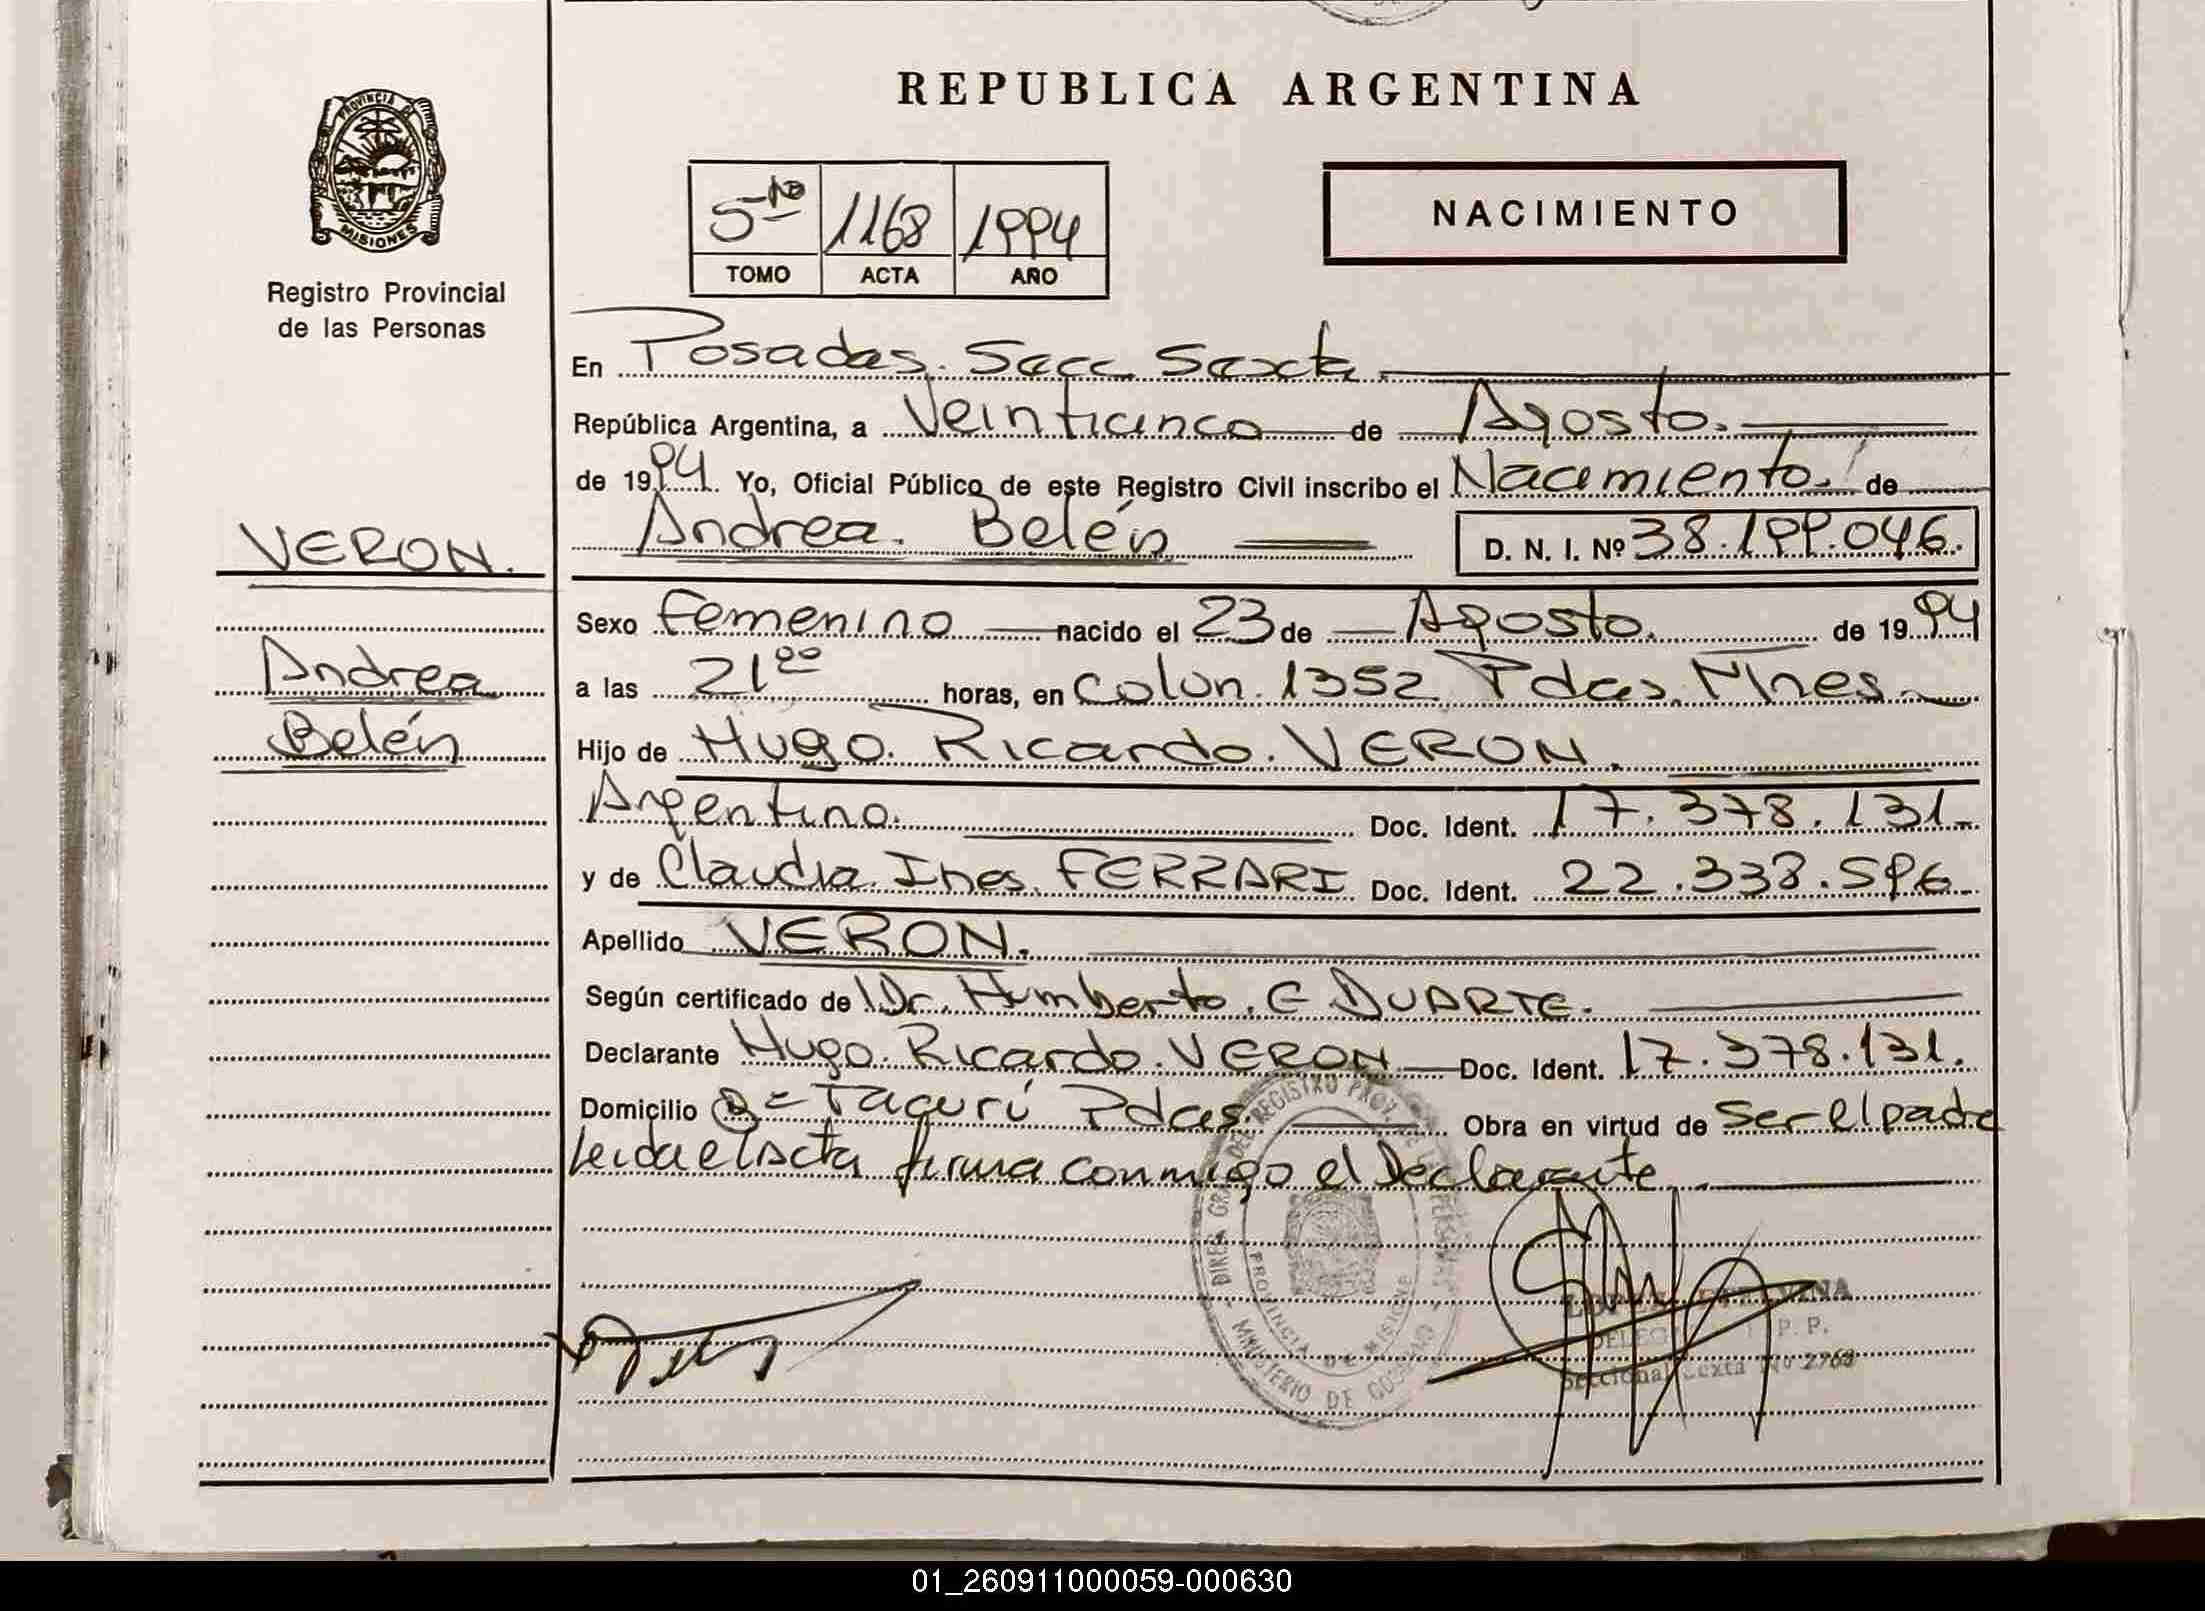 REPUBLICA ARGENTINA
PROVINCIA DE
MISIONES
Registro Provincial
de las Personas
5to 1168 1994
TOMO ACTA AÑO
NACIMIENTO
En Posadas. Secc. Sexta
República Argentina, a Veinticinco de Agosto.
de 1994. Yo, Oficial Público de este Registro Civil inscribo el Nacimiento. de
Andrea. Belén D. N. I. Nº 38.199.046.
VERON.
Andrea
Belén
Sexo Femenino nacido el 23 de Agosto. de 1994
a las 21⁰⁰ horas, en Colon. 1352 Pdas. Mnes.
Hijo de Hugo. Ricardo. VERON.
Argentino. Doc. Ident. 17.378.131.
y de Claudia. Ines. FERRARI Doc. Ident. 22.338.596
Apellido VERON.
Según certificado de Dr. Humberto. E DUARTE.
Declarante Hugo. Ricardo. VERON Doc. Ident. 17.378.131.
Domicilio Bº Tacurí Pdas. Obra en virtud de ser el padre
leida el Acta firma conmigo el Declarante
DEL REGISTRO PROV. DE PERSONAS
MINISTERIO DE GOBIERNO
PROVINCIA DE MISIONES
P. P.
Seccional Sexta Nº 2768
01_260911000059-000630